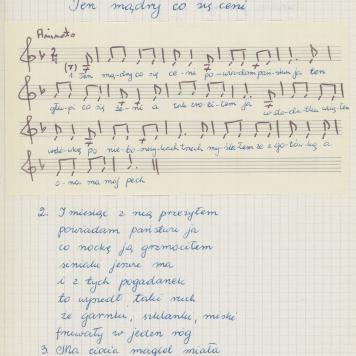 Ten mądry co się ceni
Animato
(7) 1. Ten mą-dry co się ce-ni po-wiadam państwu ja ten
głu-pi co się że-ni a tak zro-bi-łem ja
wdów-kę po nie-bo-szczykach trzech my-ślałem że z go-tów-ką a
o-na ma mój pech
2. I miesiąc z nią przeżyłem
powiadam państwu ja
co nockę ją grzmociłem
siniaki jeszcze ma
i z tych pogadanek
to wyszedł taki ruch
że garnki, szklanki, miski
fruwały w jeden róg
3. Ma ciocia magiel miała